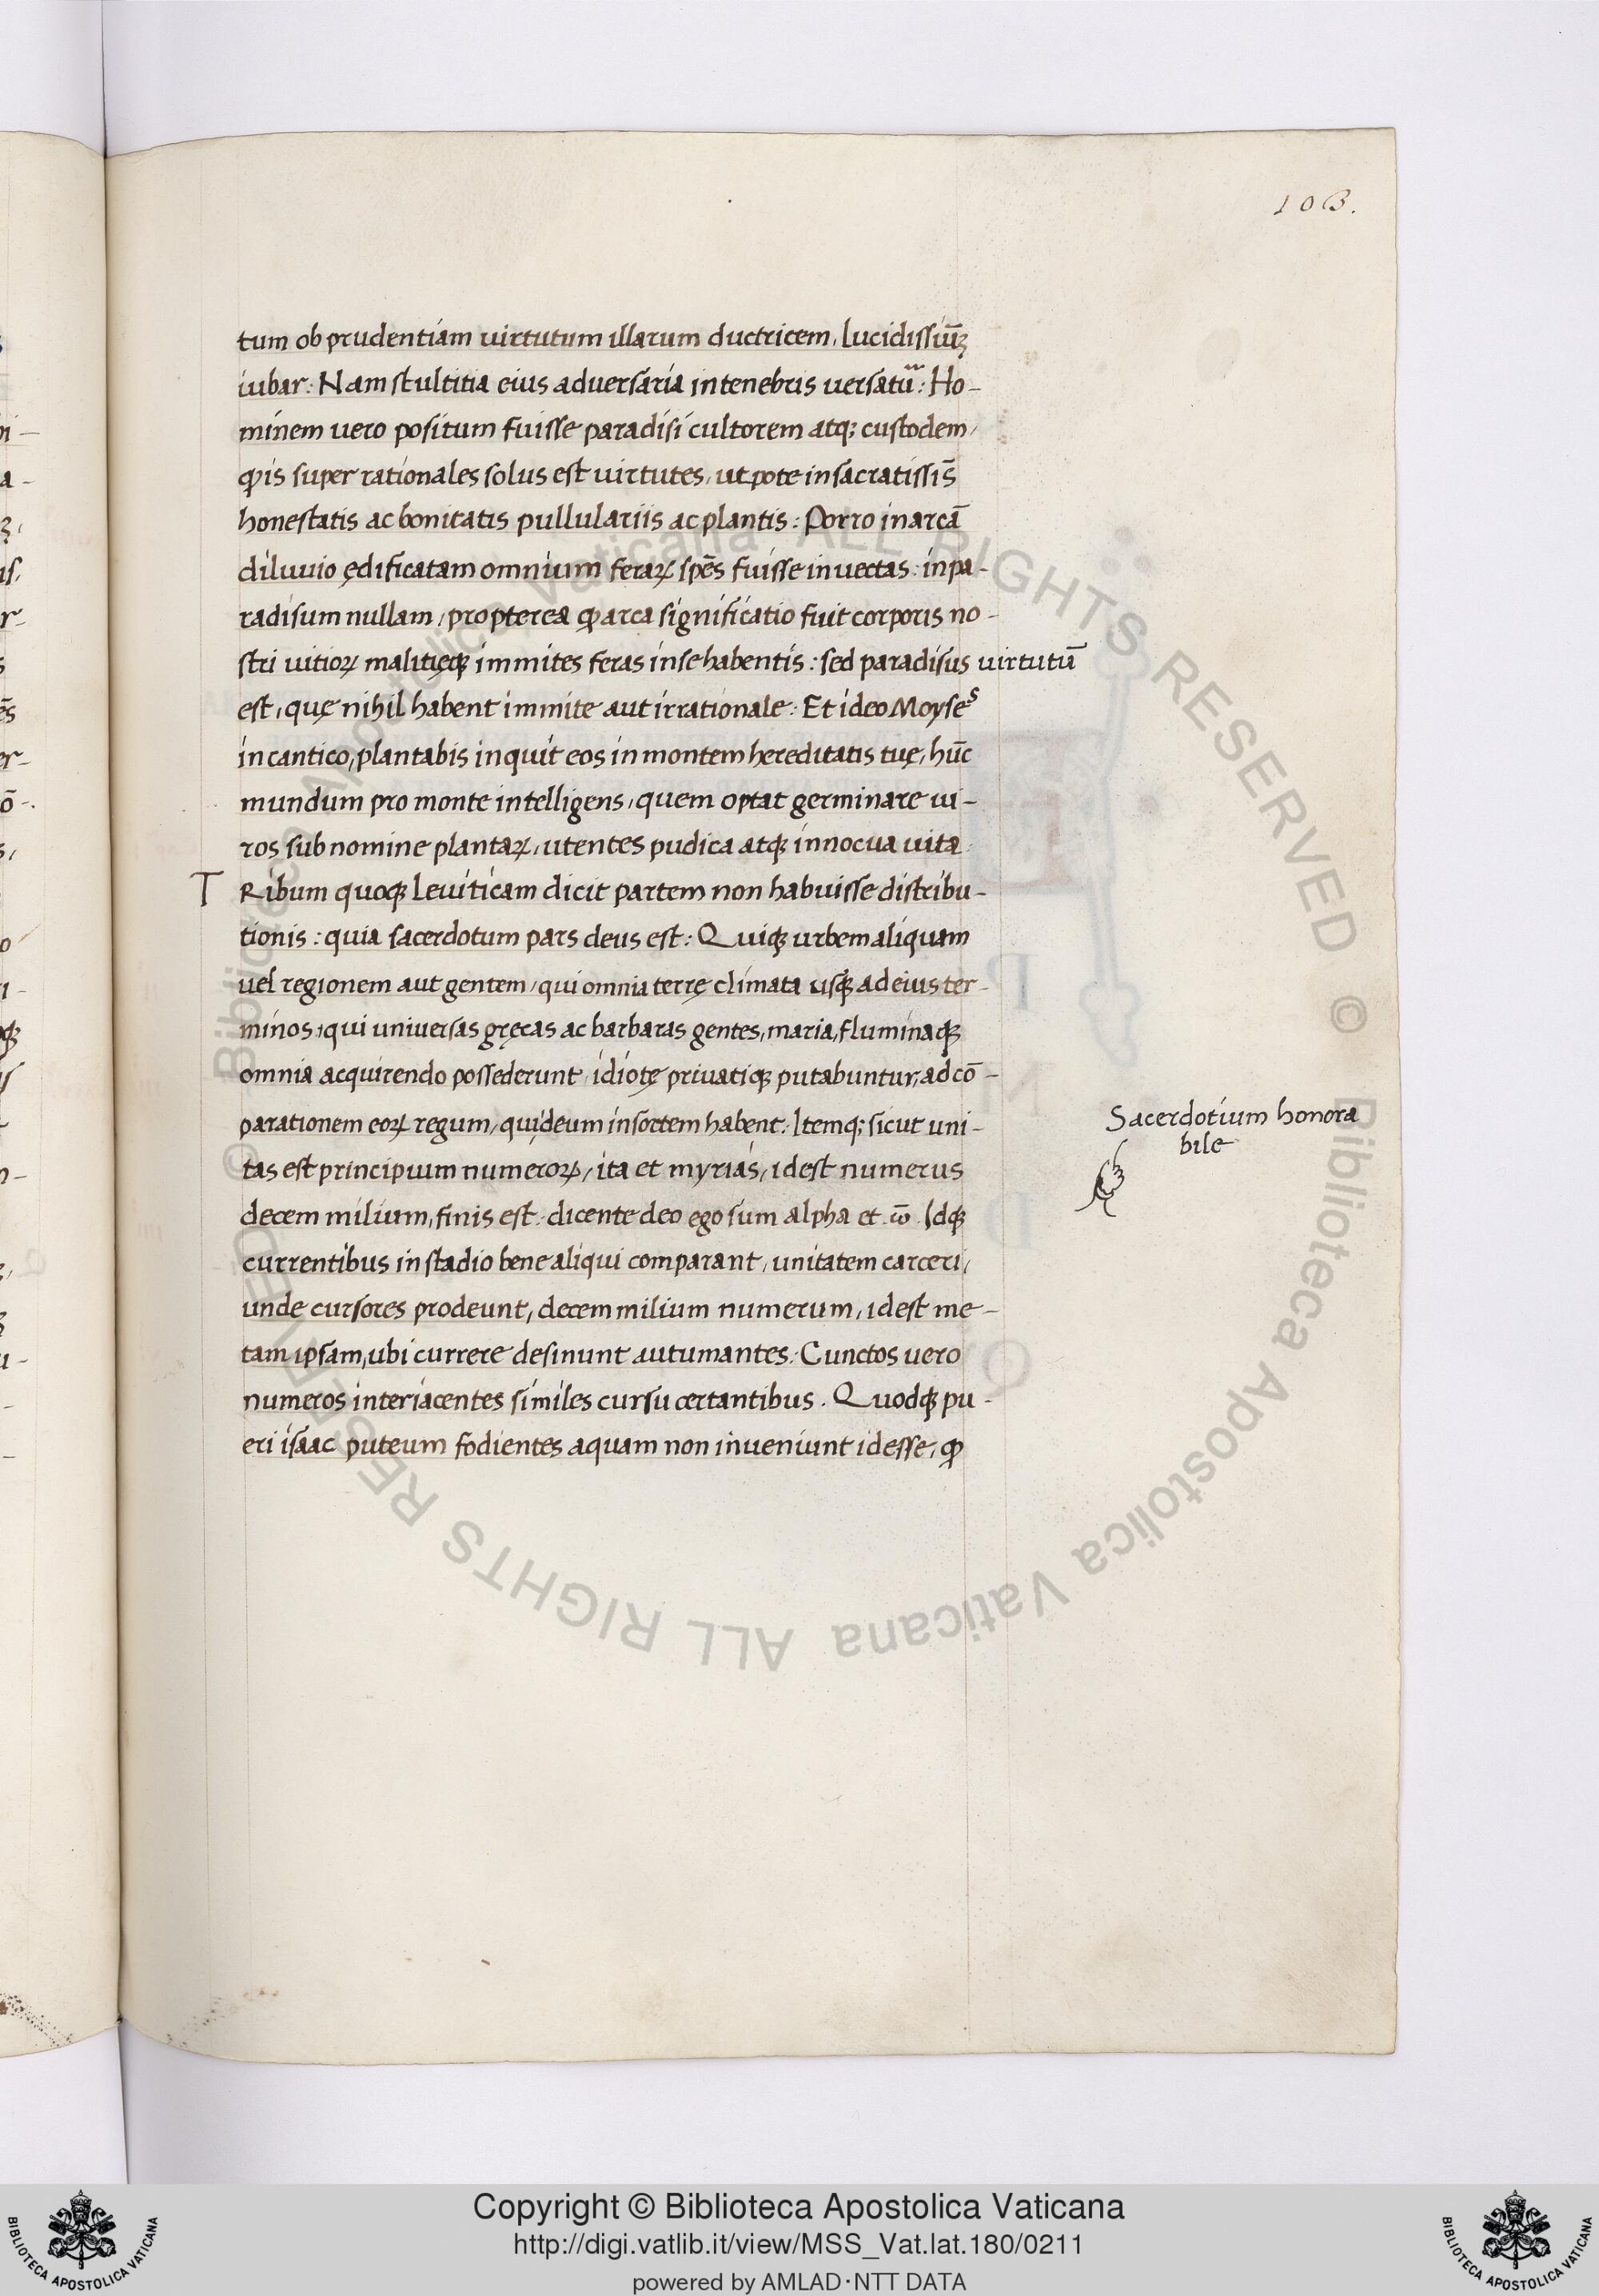 103.
tum ob prudentiam virtutum illarum ductricem, lucidissiūꝫ
iubar: Nam stultitia eius adversaria in tenebris versatū: Ho-
minem vero positum fuisse paradisi cultorem atq; custodem,
qis super rationales solus est virtutes, utpote in sacratissis̄
honestatis ac bonitatis pullulariis ac plantis: Porro in arcā
diluvio ędificatam omnium feraꝝ spēs fuisse invectas: in pa-
radisum nullam, propterea ꝙ arca significatio fuit corporis no-
stri vitioꝝ malitięqꝫ immites feras in se habentis: sed paradisus virtutū
est, quę nihil habent immite aut irrationale: Et ideo Moyses
in cantico, plantabis inquit eos in montem hereditatis tuę, hūc
mundum pro monte intelligens, quem optat germinare vi-
ros sub nomine plantaꝝ, utentes pudica atqꝫ innocua vita
TRibum quoqꝫ Leviticam dicit partem non habuisse distribu-
tionis: quia sacerdotum pars deus est: Quiqꝫ urbem aliquam
vel regionem aut gentem, qui omnia terrę climata usqꝫ ad eius ter-
minos, qui universas gręcas ac barbaras gentes, maria, fluminaqꝫ
omnia acquirendo possederunt, idiotę privatiqꝫ putabuntur, ad cō-
parationem eoꝝ regum, qui deum in sortem habent: Itemq; sicut uni-
tas est principium numeroꝝ, ita et myrias, idest numerus
decem milium, finis est: dicente deo ego sum alpha et .ω̄. Idqꝫ
currentibus in stadio bene aliqui comparant, unitatem carceri,
unde cursores prodeunt, decem milium numerum, idest me-
tam ipsam, ubi currere desinunt autumantes: Cunctos vero
numeros interiacentes similes cursu certantibus. Quodqꝫ pu-
eri isaac puteum fodientes aquam non inveniunt id esse, ꝙ
Sacerdotium honora
bile
© Biblioteca Apostolica Vaticana ALL RIGHTS RESERVED © Biblioteca Apostolica Vaticana ALL RIGHTS RESERVED
Copyright © Biblioteca Apostolica Vaticana
http://digi.vatlib.it/view/MSS_Vat.lat.180/0211
powered by AMLAD·NTT DATA
BIBLIOTECA APOSTOLICA VATICANA
BIBLIOTECA APOSTOLICA VATICANA